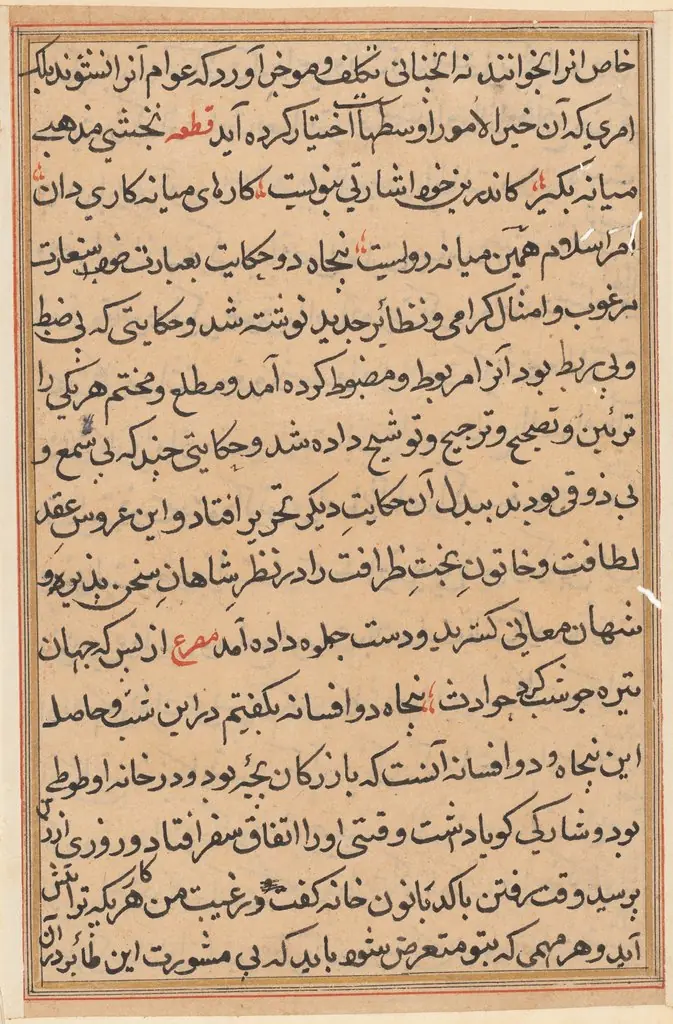 خاص انرا نخوانند نه انچنانی تکلف و موجز آورد که عوام آنرا نشنوند بلکه
امری که آن خیر الامور اوسطها است اختیار کرده آید قطعه نخشبی مذهبی
میانه بگیر کاندرین خود اشارتی بنویست کارهای میانه کاری دان
امر اسلام همین میانه رویست پنجاه دو حکایت بعبارت خوب استعارت
مرغوب و امثال گرامی و نظائر جدید نوشته شد و حکایتی که بی ضبط
و بی ربط بود آنرا مربوط و مضبوط کرده آمد و مطلع و مختم هر یکی را
تزئین و تصحیح و ترجیح و توشیح داده شد و حکایتی چند که بی سمع و
بی ذوق بودند ببدل آن حکایتِ دیگر تحریر افتاد و این عروس عقدِ
لطافت و خاتونِ تختِ ظرافت را در نظرِ شاهانِ سخن پذیر و
شهان معانی گستر ید و دست جلوه داده آمد مصرع از بس که جهان
تیره چو شب کرد حوادث پنجاه دو افسانه بگفتیم در این شب و حاصل
این پنجاه و دو افسانه آنست که بازرگان بچه بود و در خانه او طوطی
بود و شارکی گویا داشت وقتی او را اتفاق سفر افتاد و روزی ازن
پرسید وقت رفتن باکدبانون خانه گفت در غیبت من هر یکه ترا پیش
آید و هر مهمی که بتو متعرض شود باید که بی مشورت این طائر در آن